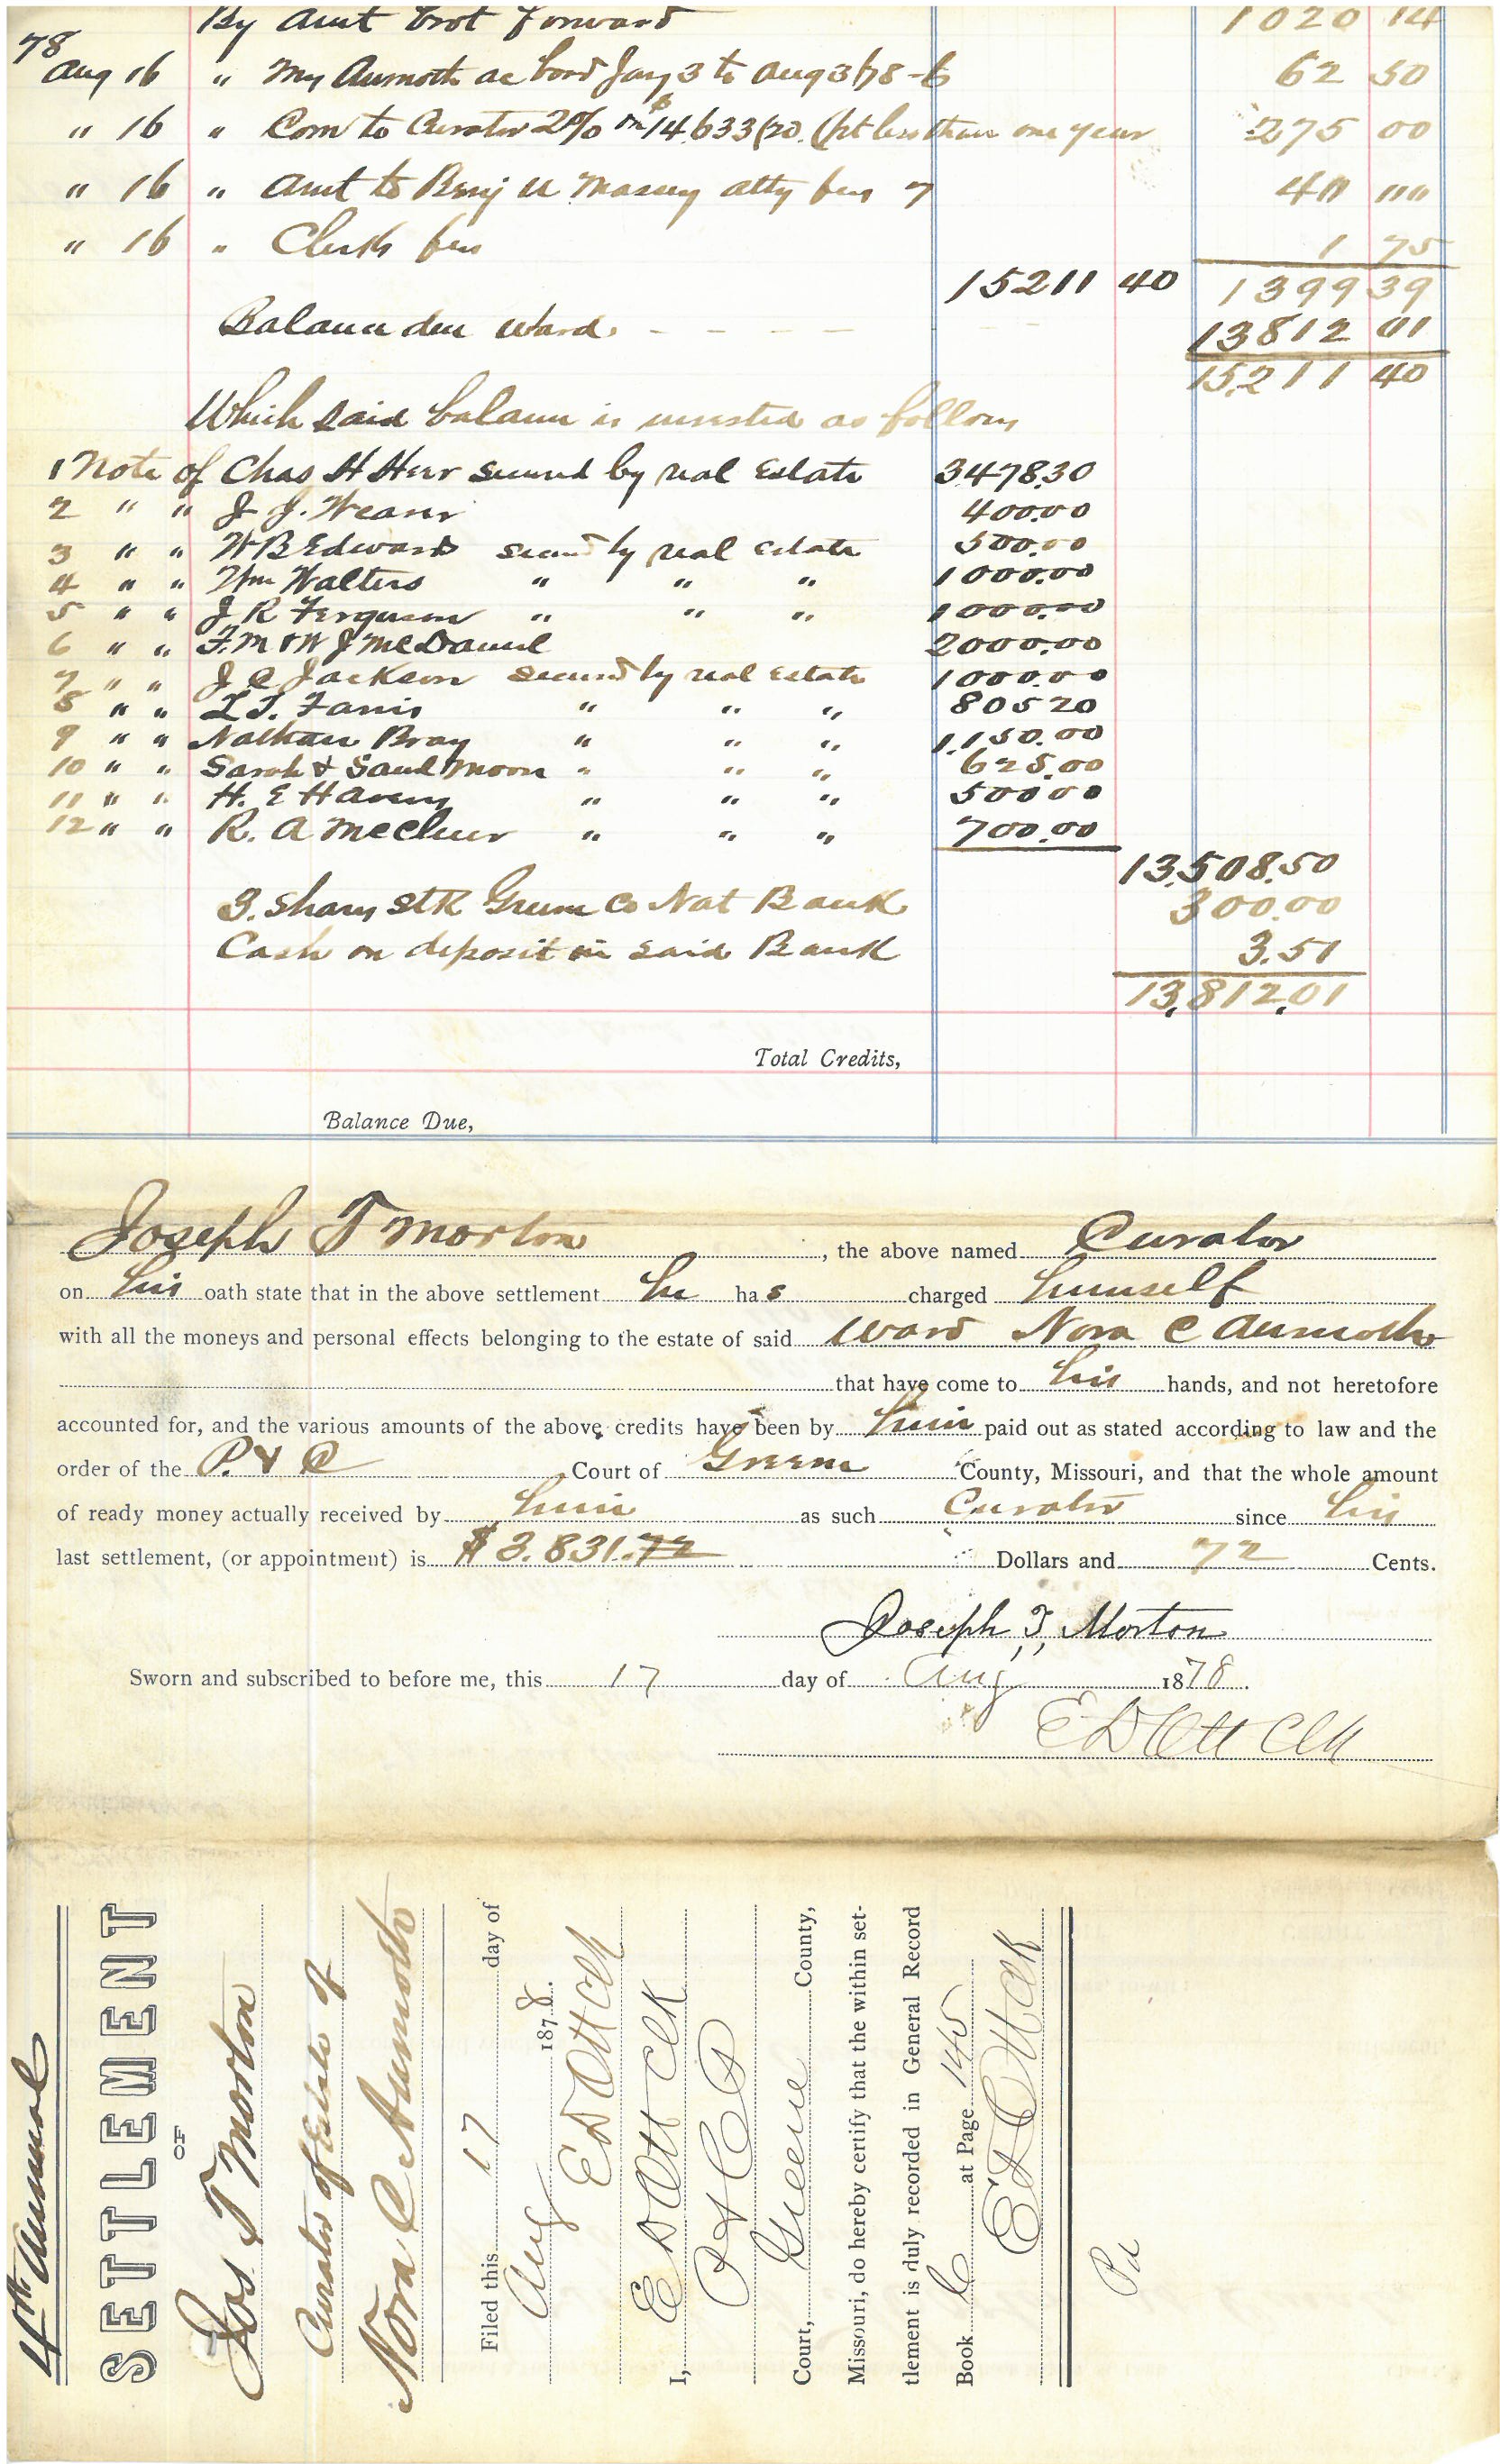 By Amt brot forward 1020 14
78
Aug 16 " Mrs Aumoth ac bord Jany 3 to Aug 3/78 - 6 62 50
" 16 " Com to Curator 2% on $14.633/20. (pt less than one year 275 00
" 16 " Amt to Benj U Massey atty fees 40 00
" 16 " Clerk fees 1 75
15211 40 1399 39
Balance due Ward. - - - - 13812 01
15211 40
Which said balance is invested as follows
1 Note of Chas H Herr secured by real Estate 3478.30
2 " " J J. Weaver 400.00
3 " " W B Edwards secured by real Estate 500.00
4 " " Wm Walters " " " 1000.00
5 " " J R Ferguson " " " 1000.00
6 " " F. M & W J McDaniel 2000.00
7 " " J C Jackson secured by real Estate 1000.00
8 " " L T. Farris " " " 805 20
9 " " Nathan Bray " " " 1,150.00
10 " " Sarah & Saml Moon " " " 625.00
11 " " H. E Havens " " " 500 00
12 " " R. A McCluer " " " 700.00
13,508.50
3. Shares stk Greene Co Nat Bank 300.00
Cash on deposit in said Bank 3.51
13,812.01
Total Credits,
Balance Due,
Joseph T Morton, the above named Curator
on his oath state that in the above settlement he has charged himself
with all the moneys and personal effects belonging to the estate of said Ward Nora C Aumoth
that have come to his hands, and not heretofore
accounted for, and the various amounts of the above credits have been by him paid out as stated according to law and the
order of the P. & C Court of Greene County, Missouri, and that the whole amount
of ready money actually received by him as such Curator since his
last settlement, (or appointment) is $3.831.72 Dollars and 72 Cents.
Joseph T. Morton
Sworn and subscribed to before me, this 17 day of Aug 1878.
E D Ott Clk
4th Annual
SETTLEMENT
OF
Jos T Morton
Curator of Estate of
Nora C Aumoth
Filed this 17 day of
Aug 1878.
E D Ott Clk
I, E D Ott Clk
P & C
Court, Greene County,
Missouri, do hereby certify that the within set-
tlement is duly recorded in General Record
Book C at Page 145
E D Ott Clk
Pd